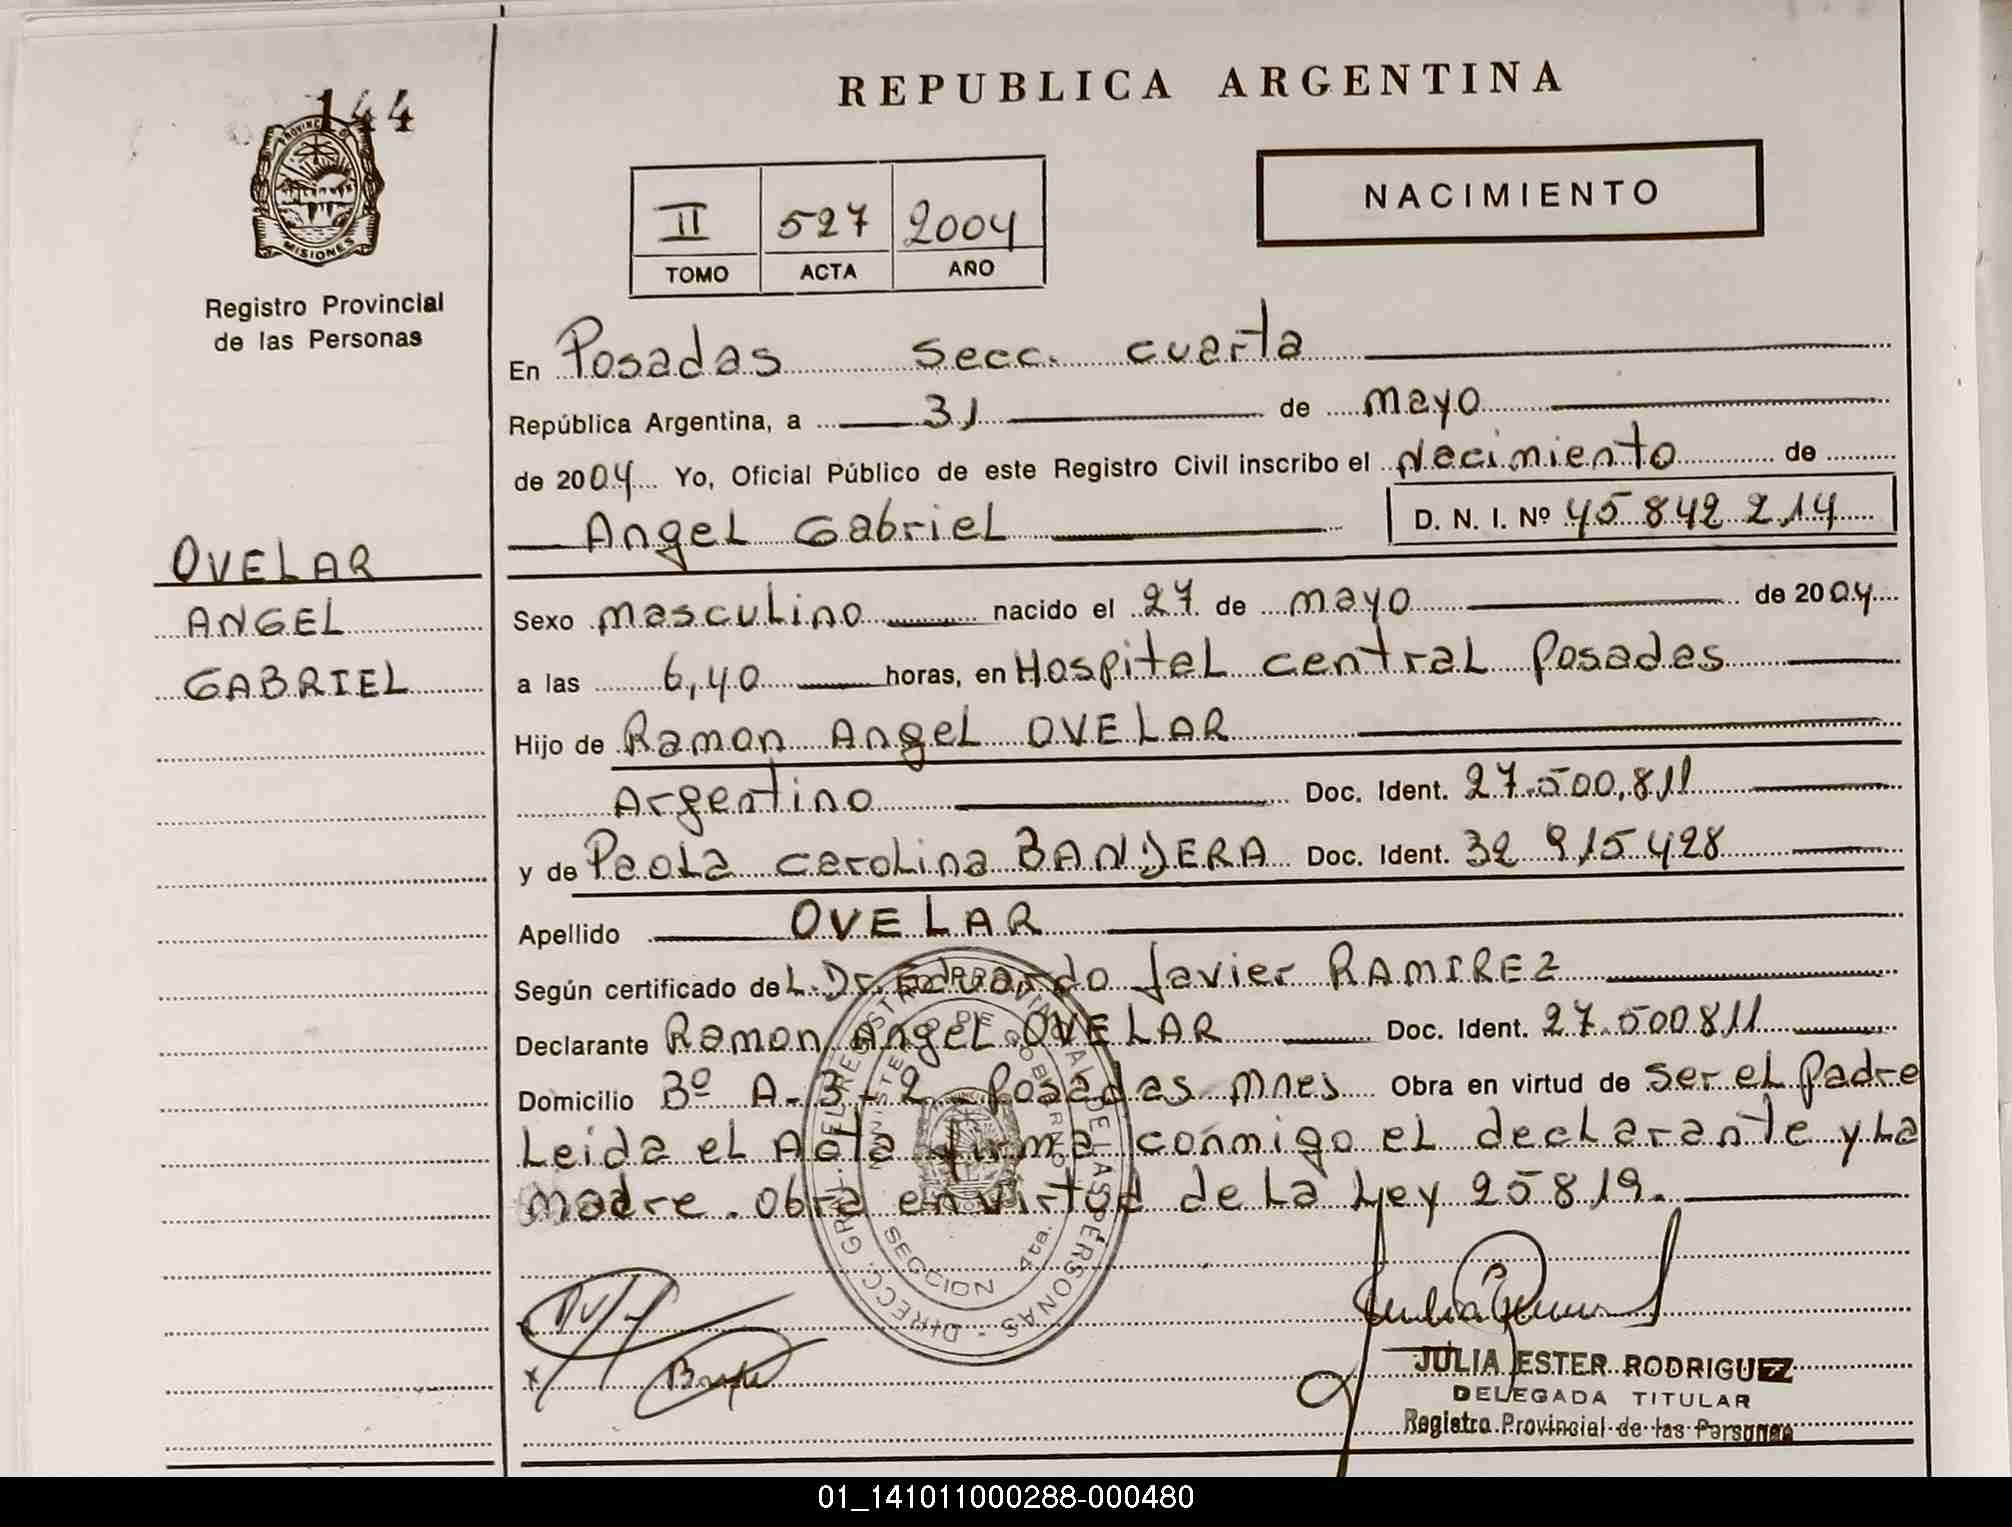 144
PROVINCIA D
MISIONES
Registro Provincial
de las Personas
OVELAR
ANGEL
GABRIEL
REPUBLICA ARGENTINA
II 527 2004
TOMO ACTA AÑO
NACIMIENTO
En Posadas Secc. cuarta
República Argentina, a 31 de mayo
de 2004 Yo, Oficial Público de este Registro Civil inscribo el Nacimiento de
Angel Gabriel D. N. I. Nº 45 842 214
Sexo masculino nacido el 27 de mayo de 2004
a las 6,40 horas, en Hospital central Posadas
Hijo de Ramon Angel OVELAR
Argentino Doc. Ident. 27.500.811
y de Paola carolina BANDERA Doc. Ident. 32 915 428
Apellido OVELAR
Según certificado de L. Dr. Eduardo Javier RAMIREZ
Declarante Ramon Angel OVELAR Doc. Ident. 27.500811
Domicilio Bº A-3-2 Posadas Mnes Obra en virtud de Ser el padre
Leida el Acta firma conmigo el declarante y La
madre. obra en virtud de La Ley 25819.
DIRECC. GRAL. DEL REGISTRO PROVINCIAL DE LAS PERSONAS -
MINISTERIO DE GOBIERNO
SECCION 4ta.
JULIA ESTER RODRIGUEZ
DELEGADA TITULAR
Registro Provincial de las Personas
01_141011000288-000480